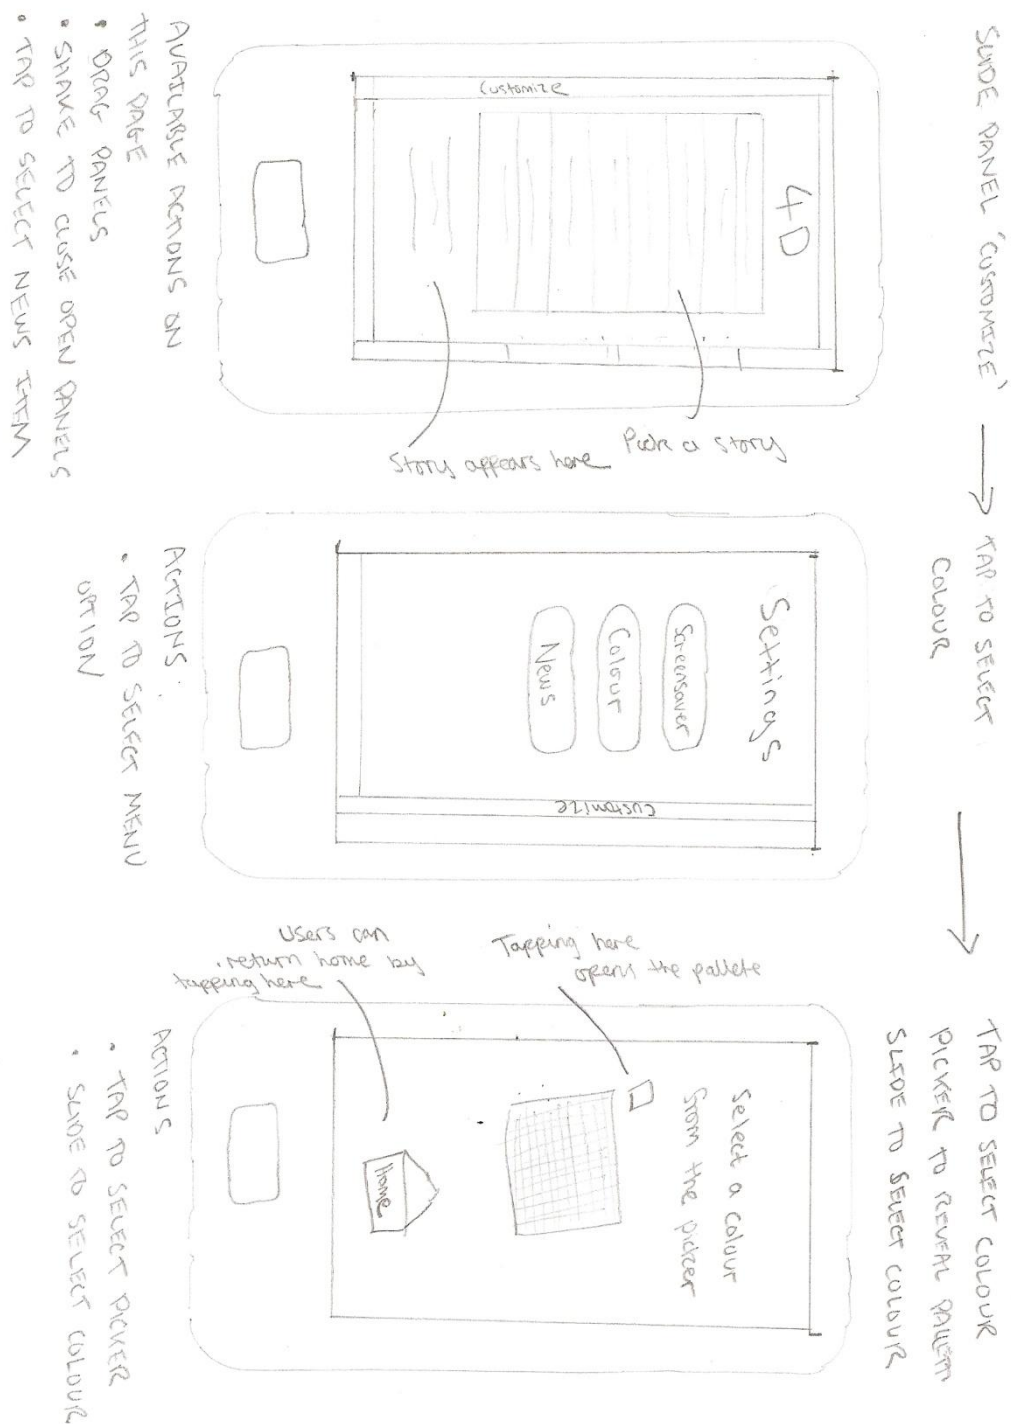 SLIDE PANEL 'CUSTOMIZE'
TAP TO SELECT
COLOUR
TAP TO SELECT COLOUR
PICKER TO REVEAL PALLETT
SLIDE TO SELECT COLOUR
4D
Customize
Pick a story
Story appears here
AVAILABLE ACTIONS ON
THIS PAGE
• DRAG PANELS
• SHAKE TO CLOSE OPEN PANELS
• TAP TO SELECT NEWS ITEM
Settings
Screensaver
Colour
News
CUSTOMIZE
ACTIONS
• TAP TO SELECT MENU
OPTION
Select a colour
from the picker
Tapping here
opens the pallete
Home
Users can
return home by
tapping here
ACTIONS
• TAP TO SELECT PICKER
• SLIDE TO SELECT COLOUR